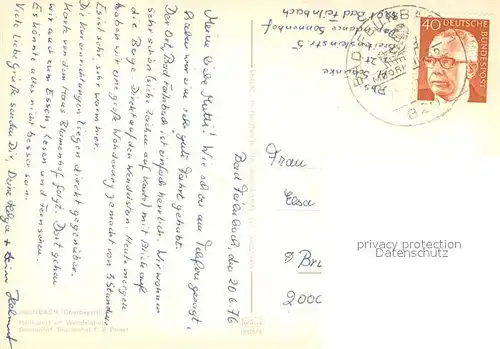 Bad Feilnbach, den 20.6.76
Meine liebe Mutti! Wie schon am Telefon gesagt,
haben wir eine sehr gute Fahrt gehabt.
Der Ort, Bad Feilnbach ist einfach herrlich. Wir wohnen
sehr schön (siehe Zeichen auf Karte) mit Blick auf
die Berge. Direkt auf den Wendelstein. Heute morgen
haben wir eine große Wanderung gemacht von 3 Stunden
Es ist sehr, sehr warm hier.
Die Kureinrichtungen liegen direkt gegenüber.
Karte von dem Haus Blumenhof folgt. Dort gehen
wir auch zum Essen, lesen und Fernsehen.
Es könnte alles nicht besser sein.
Viele liebe Grüße senden Dir, Deine Helga + Dein Helmut
FEILNBACH (Oberbayern)
Abs.
8201 Bad Feilnbach
40
DEUTSCHE
BUNDESPOST
Frau
Elsa
2000
privacy protection
Datenschutz